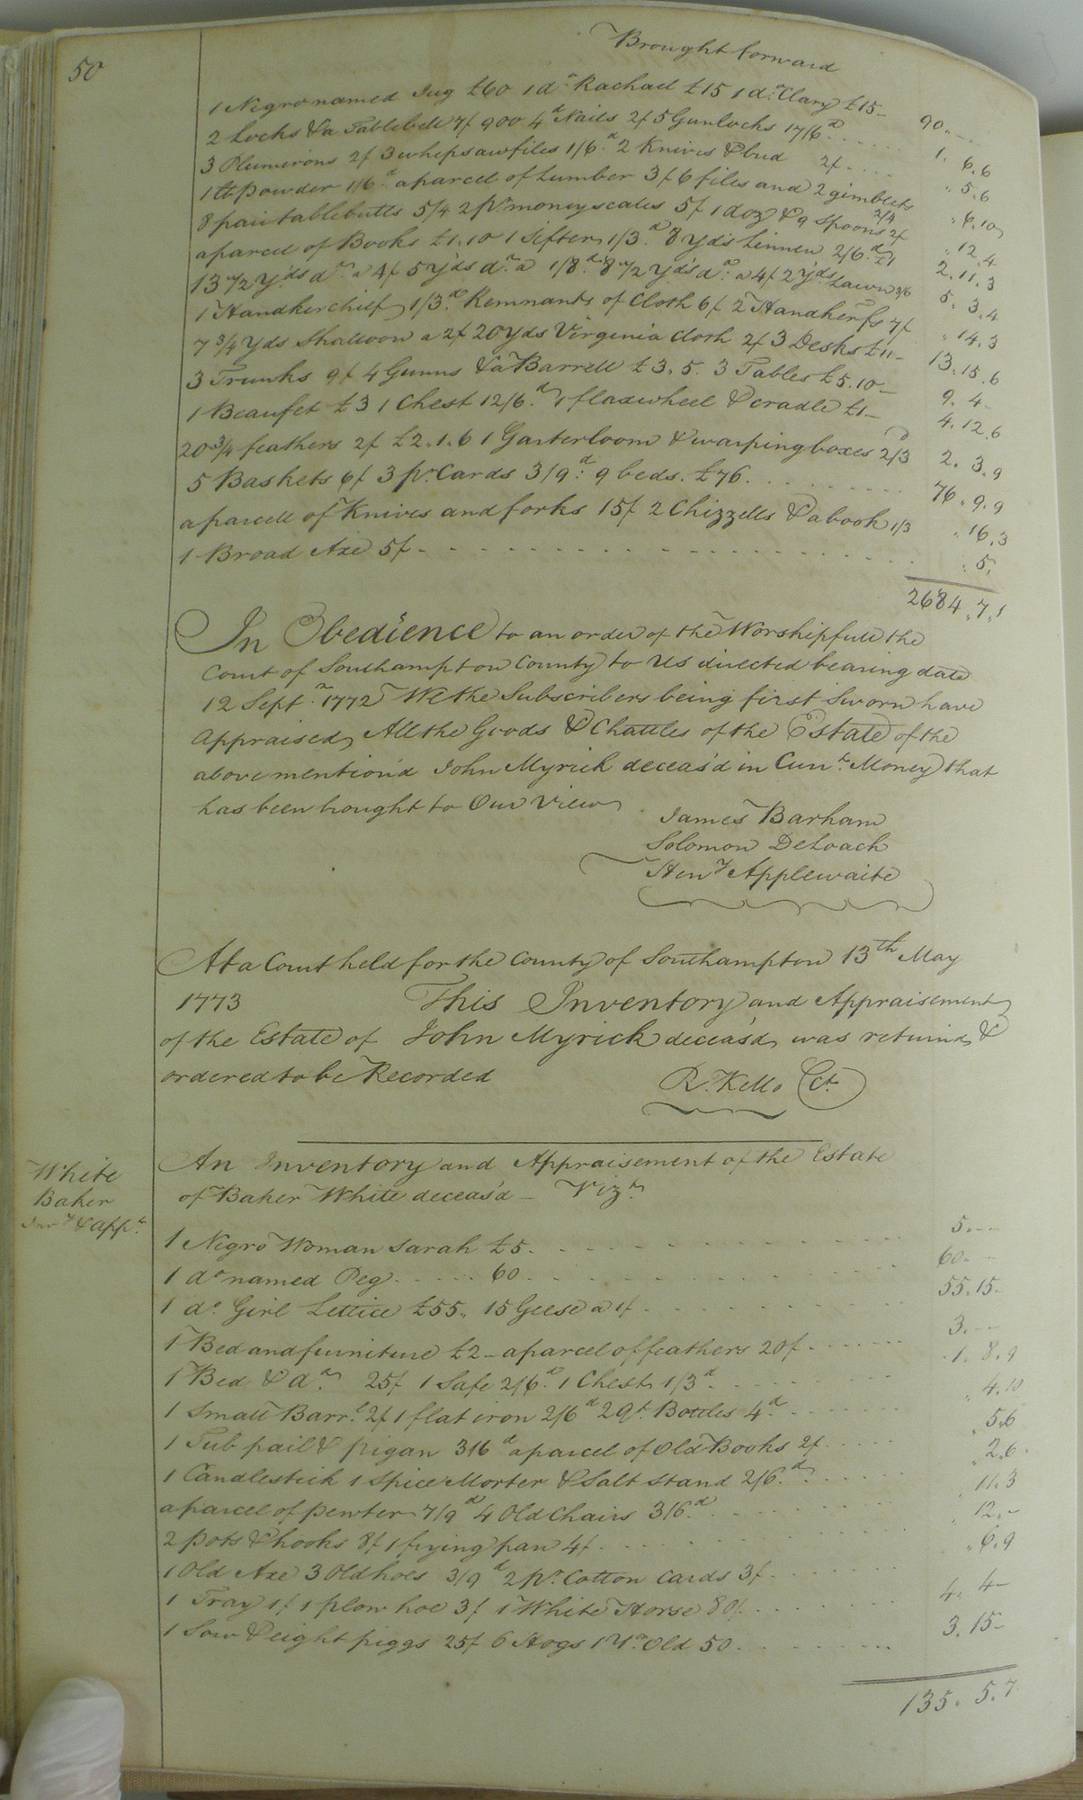 50
Brought forward
1 Negro named Jug £60 1 do Rachael £15 1 do. Clary £15_ 90 . -
2 Locks & a Tablebell 7/ 900 4d Nails 2/ 5 Gunlocks 17/6d 1. 6. 6
3 Plumirons 2/ 3 whipsawfiles 1/6.d 2 Knives & bud 2/. . . . . 5. 6
1 lb powder 1/6d a parcel of Lumber 3/ 6 files and 2 gimblets 2/4 . 6. 10
8 pair tablebutts 5/4 2 pr. money scales 5/ 1 doz & 9 spoons 2/ . 12. 4
a parcel of Books £1.10 1 Sifter 1/3.d 8 yds Linnen 2/6.d £1 2. 11. 3
13 1/2 Yds do a 4/ 5 yds do. a 1/8d 8 1/2 Yds do a 4/ 2 yds Lawn 3/6 5. 3. 4
1 Handkerchief 1/3.d Remnants of Cloth 6/ 2 Handkerfs 7/ . 14. 3
7 3/4 Yds Shalloon a 2/ 20 yds Virginia Cloth 2/ 3 Desks £11_ 13. 15. 6
3 Trunks 9/ 4 Gunns & a Barrell £3. 5. 3 Tables £5.10_ 9. 4_
1 Beaufet £3 1 Chest 12/6.d 1 flaxwheel & cradle £1_ 4. 12. 6
20 3/4 feathers 2/ £2. 1. 6 1 Garterloom & warpingboxes 2/3 2. 3. 9
5 Baskets 6/ 3 pr. Cards 3/9.d 9 beds. £76. . . . . 76. 9. 9
a parcell of Knives and forks 15/ 2 Chizzells & a book 1/3 . 16. 3
1 Broad Axe 5/ - - - - . 5.
2684. 7. 1
In Obedience to an order of the Worshipfull the
Court of Southampton County to Us directed bearing date
12 Septr. 1772 We the Subscribers being first Sworn have
Appraised All the Goods & Chattles of the Estate of the
above mention'd John Myrick deceas'd in Curr.t Money that
has been bought to Our View
James Barham
Solomon DeLoach
Heny Applewaite
At a Court held for the County of Southampton 13th May
1773 This Inventory and Appraisement
of the Estate of John Myrick deceas'd, was returnd, &
ordered to be Recorded
R. Kello Ct.
White
Baker
Invy & appt.
An Inventory and Appraisement of the Estate
of Baker White deceas'd _ Vizt.
1 Negro Woman Sarah £5. - - - 5. - -
1 do named Peg. . . . . 60 . - - - 60. - -
1 do. Girl Lettice £55. 15 Geese a 1/. - - - 55. 15.
1 Bed and furniture £2 _ a parcel of feathers 20/. - - - 3. - -
1 Bed & do. 25/ 1 Safe 2/6d. 1 Chest 1/3d. - - - 1. 8. 9
1 Small Barrl. 2/ 1 flat iron 2/6d 2 Qt. Bottles 4d. - - . 4. 10
1 Tub pail & pigan 3/6d a parcel of Old Books 2/. . . . . 5.6
1 Candlestick 1 Spice Morter & Salt Stand 2/6.d . . . . 2. 6.
a parcel of pewter 7/9d 4 Old Chairs 3/6.d . . . . 11. 3
2 pots & hooks 8/ 1 frying pan 4/. - - - . 12. -
1 Old Axe 3 Old hoes 3/9d 2 pr. Cotton Cards 3/. - - . 6. 9
1 Tray 1/ 1 plow hoe 3/ 1 White Horse 80/. - - - 4. 4_
1 Sow & eight piggs 25/ 6 Hogs 1 Yr. Old 50. - - - 3. 15_
135. 5. 7